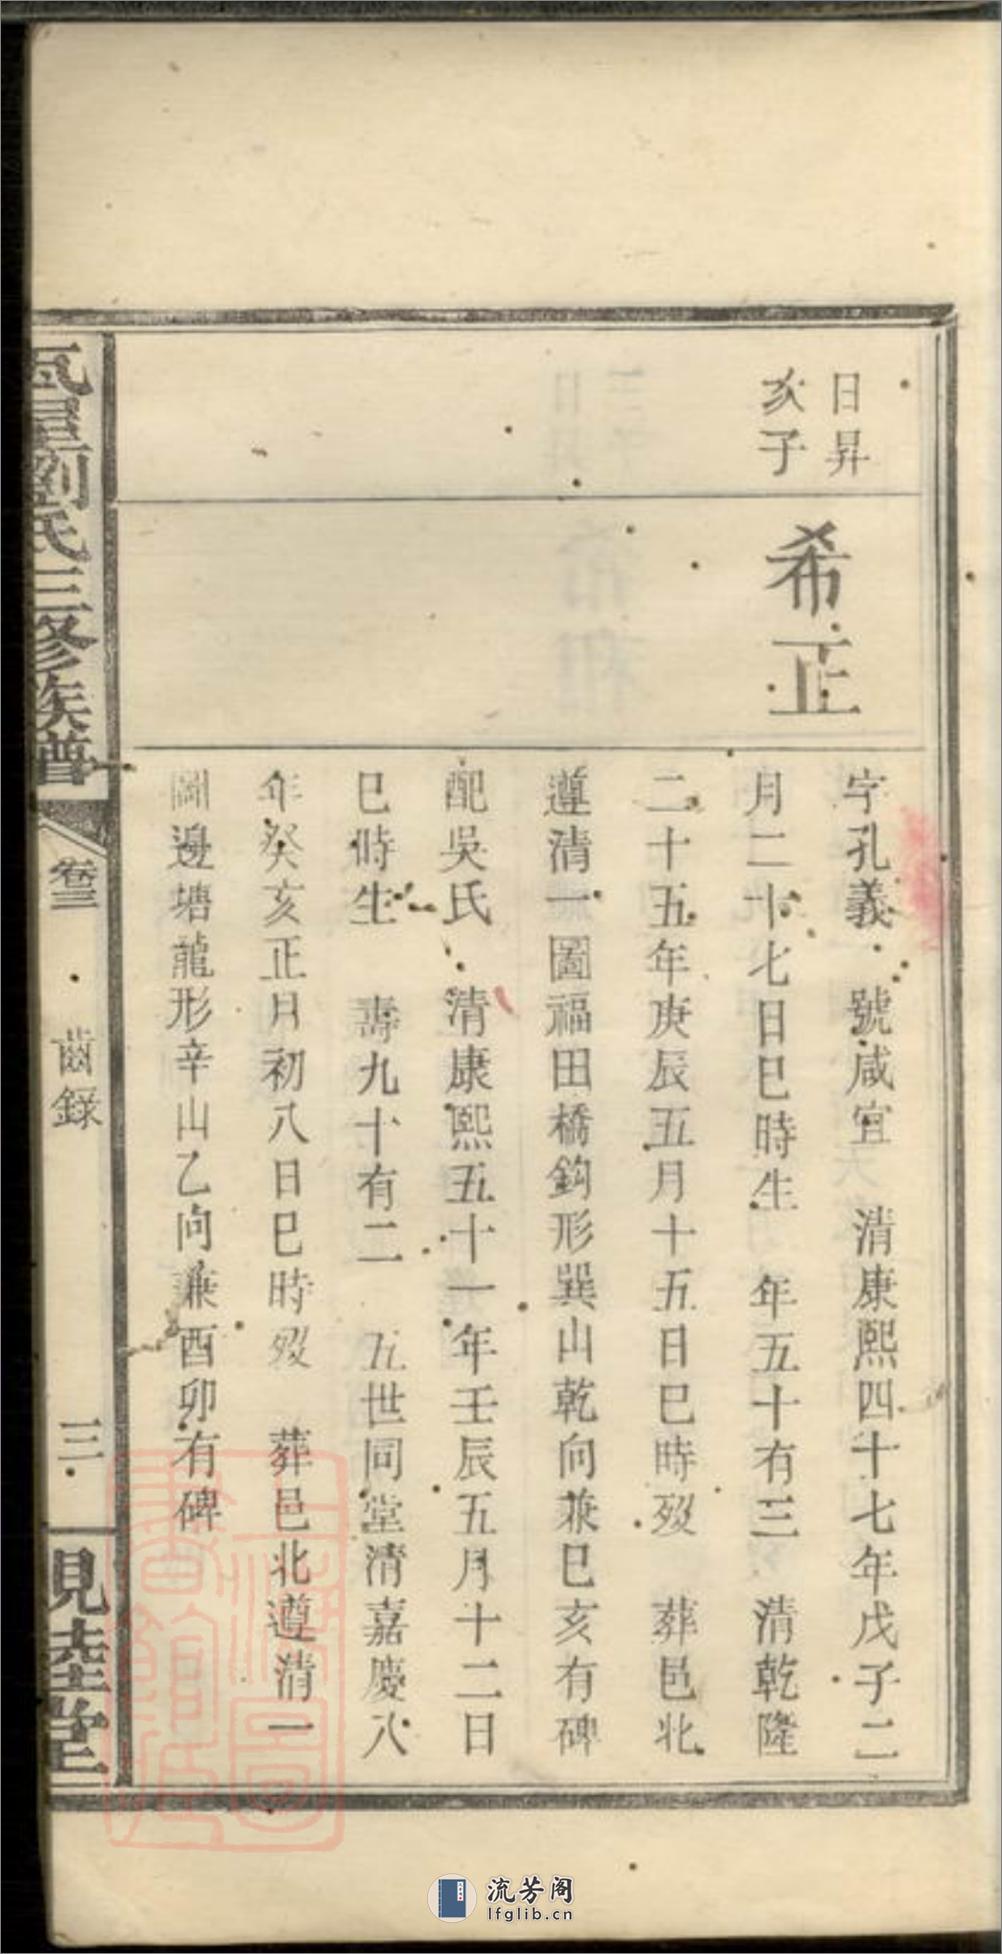 日昇
亥子
希正
字孔義 號咸宜 清康熙四十七年戊子二
月二十七日巳時生 年五十有三 清乾隆
二十五年庚辰五月十五日巳時歿 葬邑北
遵清一圖福田橋鈎形巽山乾向兼巳亥有碑
配吳氏 清康熙五十一年壬辰五月十二日
巳時生 壽九十有二 五世同堂清嘉慶八
年癸亥正月初八日巳時歿 葬邑北遵清一
圖邊塘龍形辛山乙向兼酉卯有碑
瓦屋劉氏三修族譜
卷三
齒錄
三
睍睦堂
流芳阁
lfglib.cn